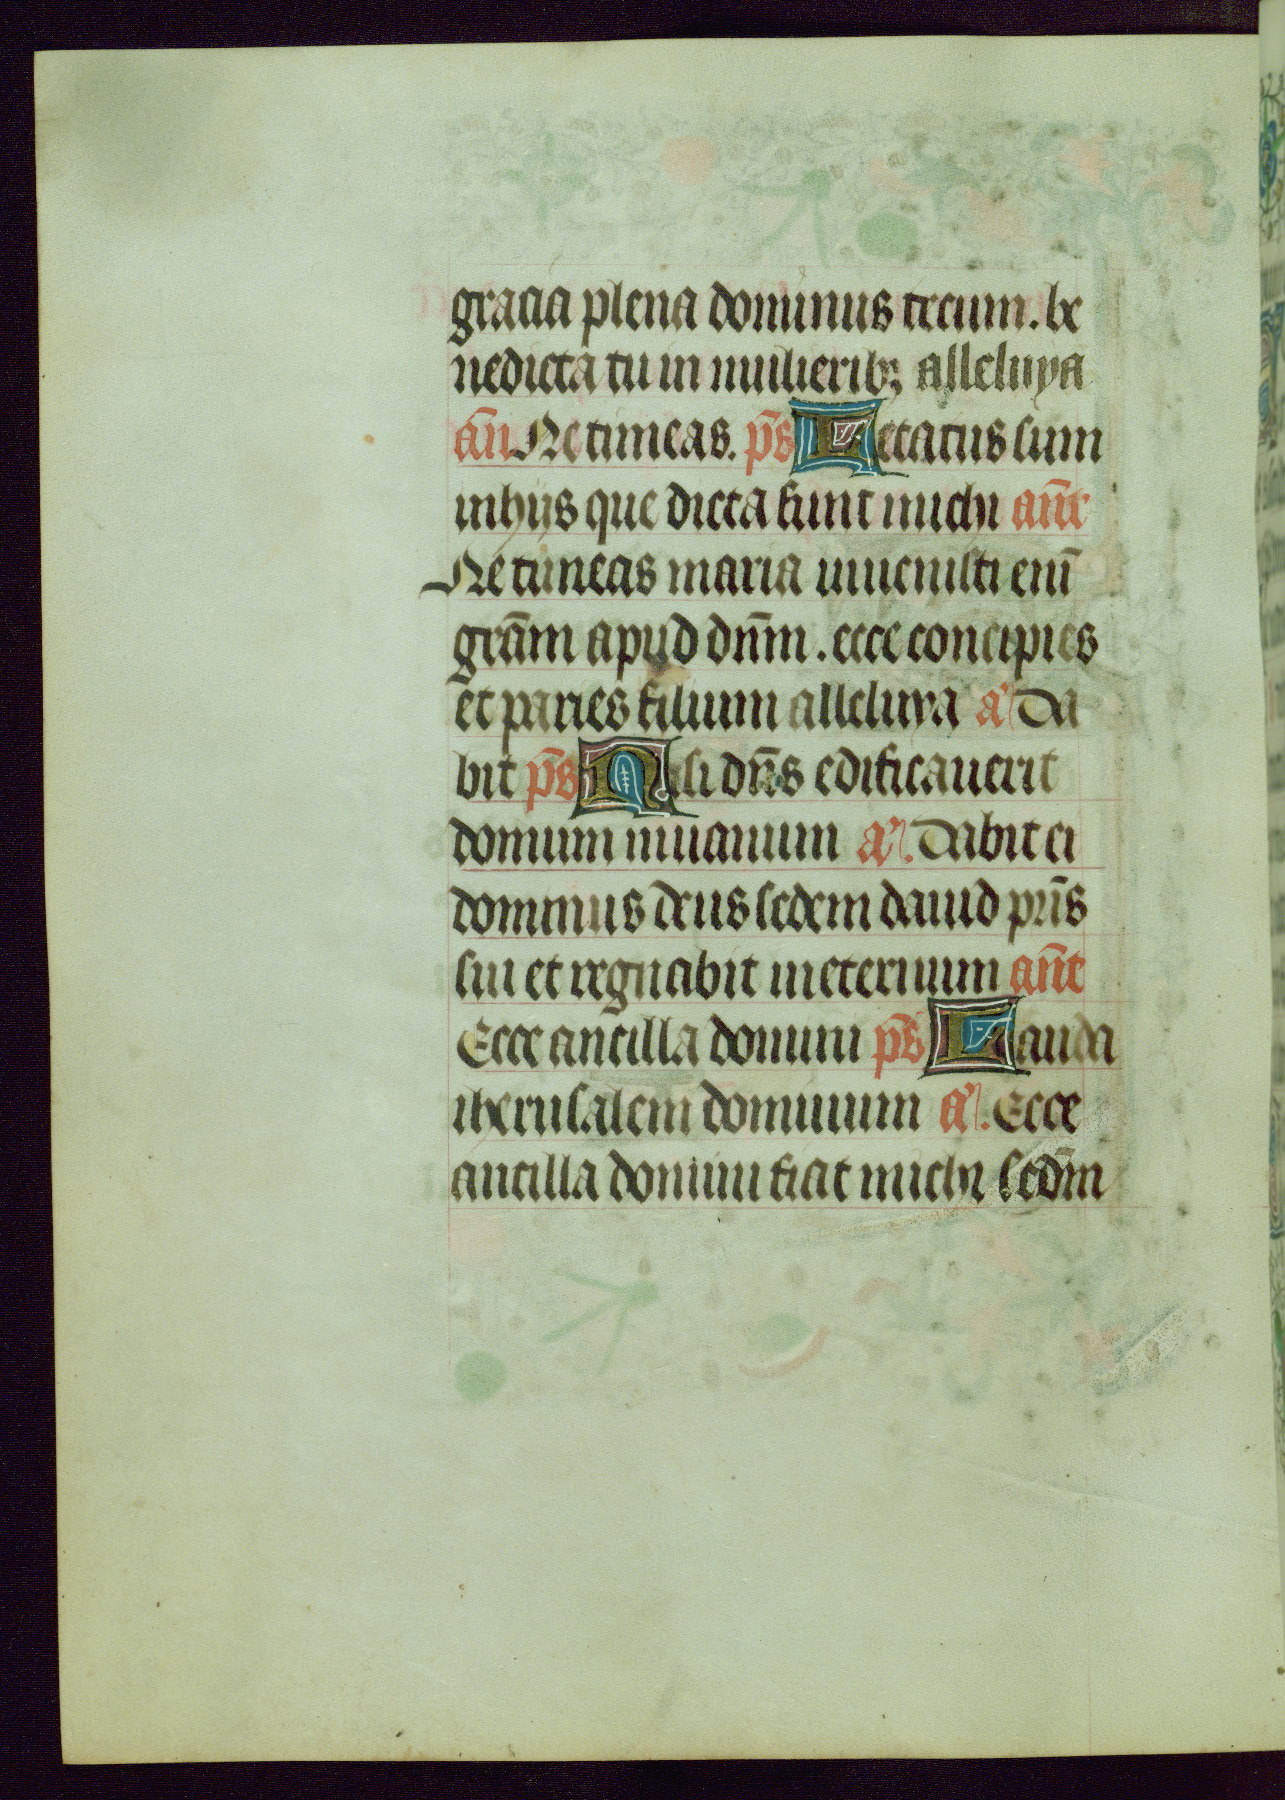 gracia plena dominus tecum. be
nedicta tu in mulierib; alleluya
an̄ Ne timeas. ps̄ Letatus sum
in hijs que dicta sunt michi an̄t
Ne timeas maria inuenisti eni̅
gra̅m apud dn̅m. ecce concipies
et paries filium alleluya a' Da
bit ps̄ Nisi dn̅s edificauerit
domum inuanum a'. Dabit ei
dominus deus sedem dauid pri̅s
sui et regnabit in eternum an̄t
Ecce ancilla domini ps̄ Lauda
iherusalem dominum a'. Ecce
ancilla domini fiat michi scdm̅